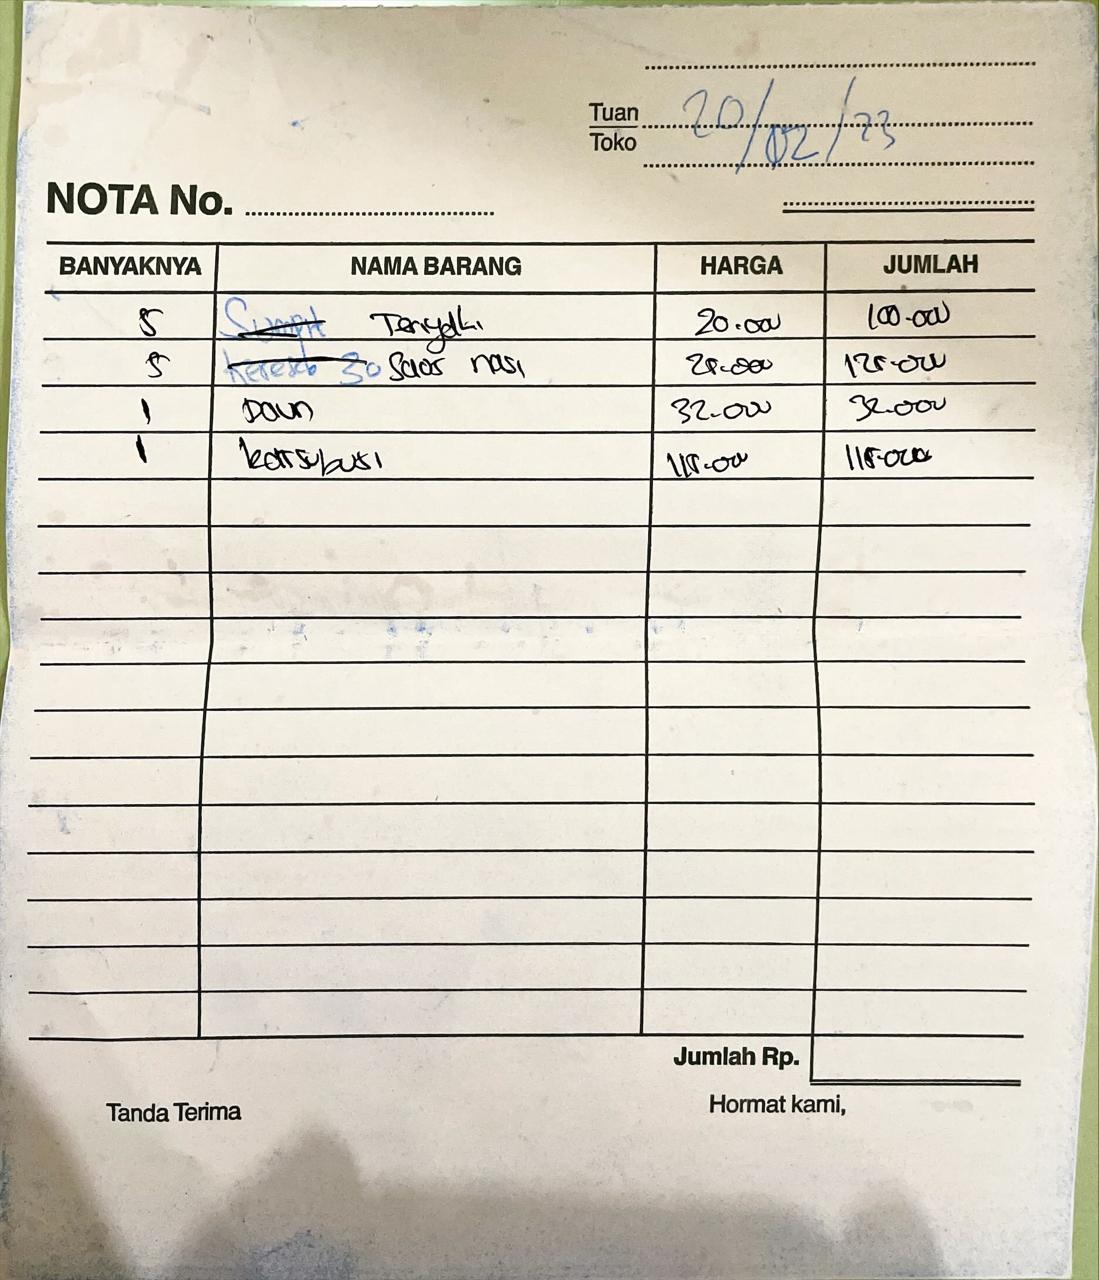 Tuan
Toko
20/02/23
NOTA No.
BANYAKNYA NAMA BARANG HARGA JUMLAH
5 Sumpit Teriyaki 20.000 100.000
5 Keresek 30 Saos nasi 25.000 125.000
1 Daun 32.000 32.000
1 115.000 115.000
Jumlah Rp.
Tanda Terima Hormat kami,